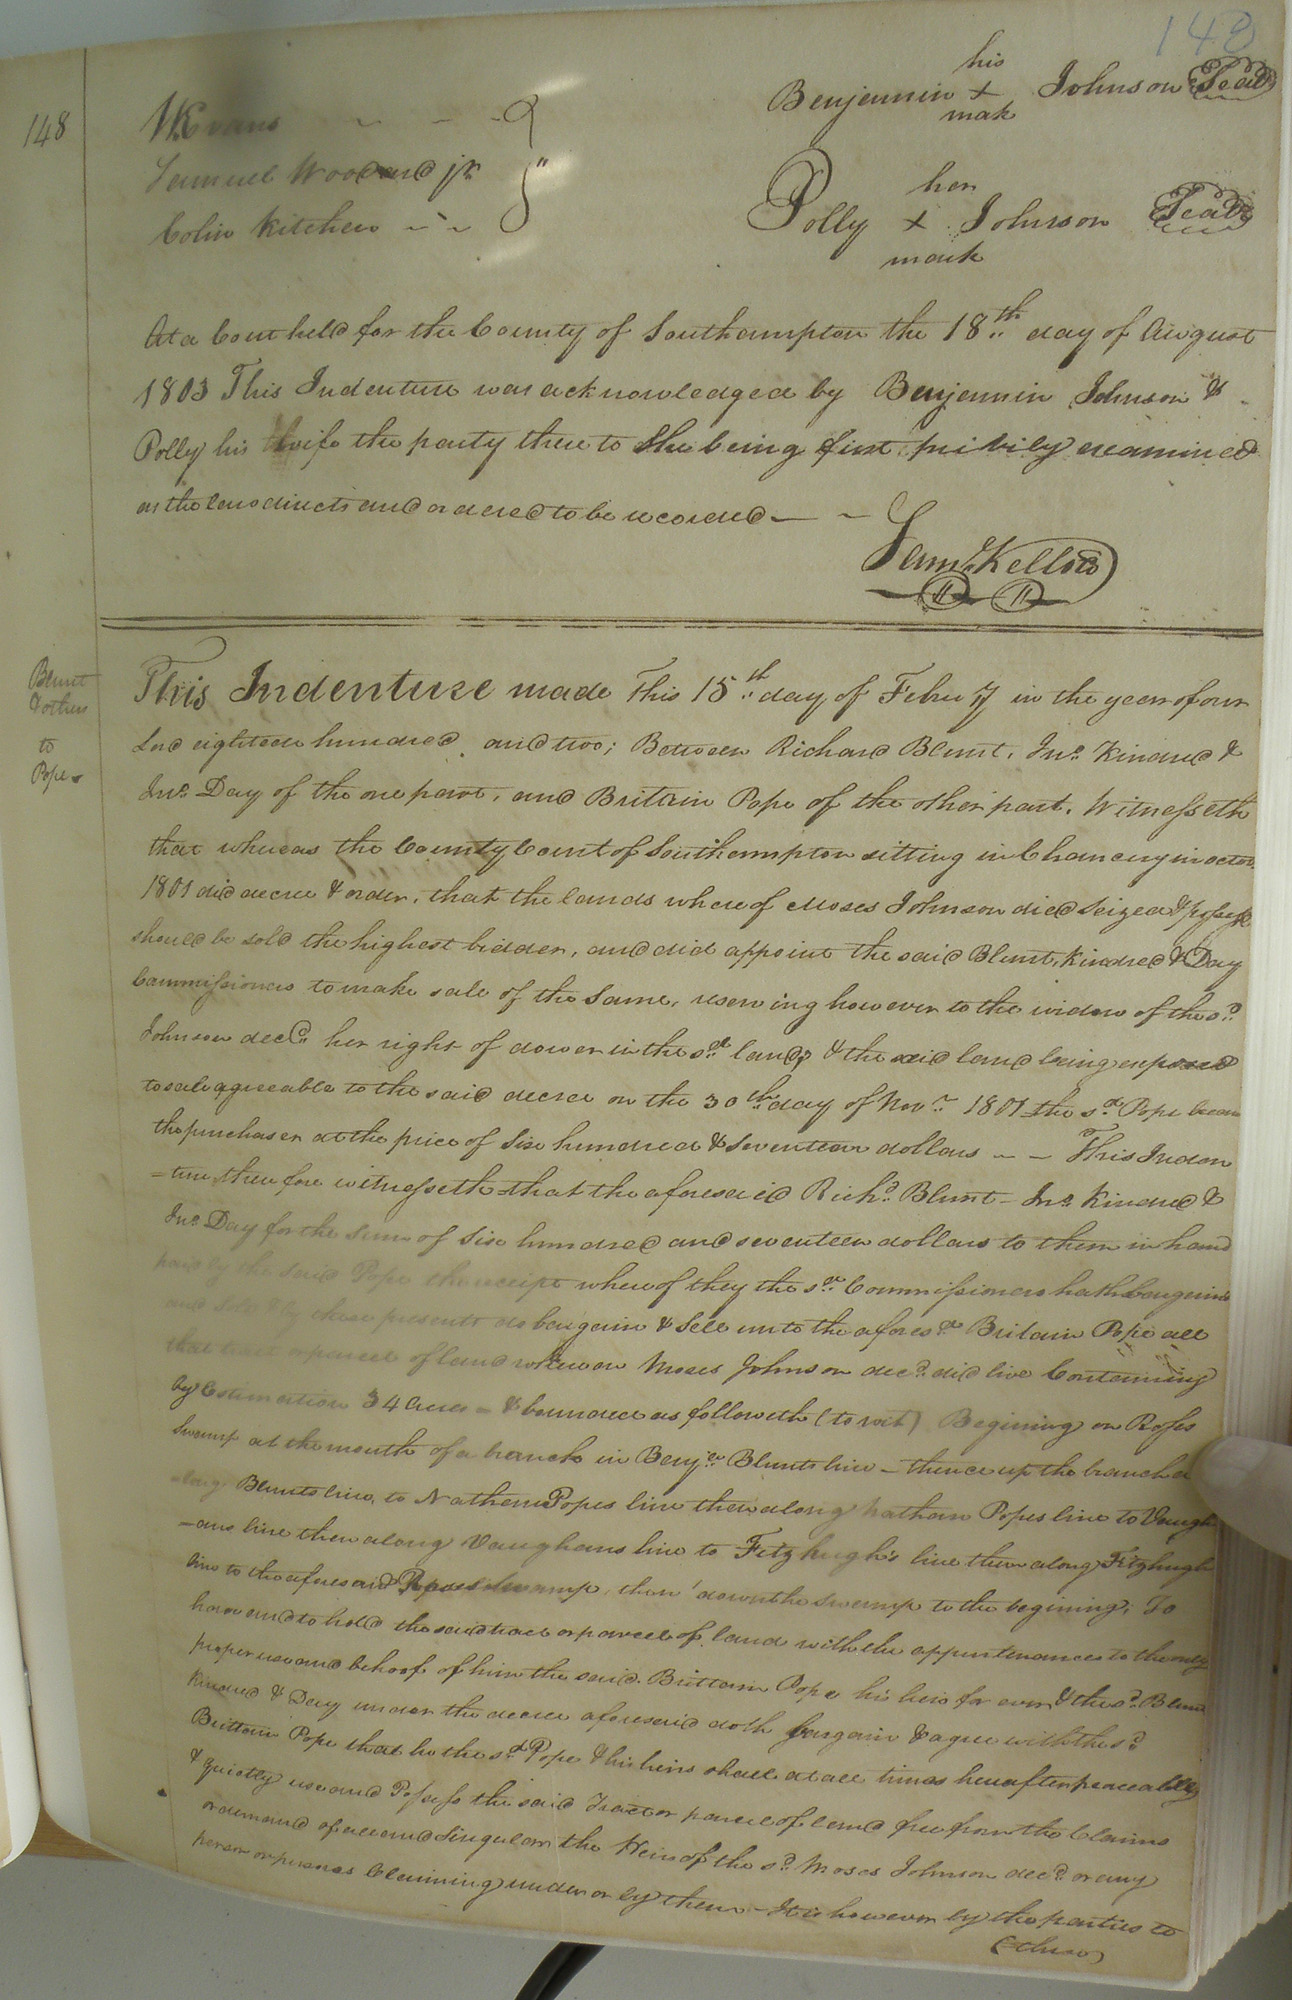 148
his
148
Benjamin + Johnson Seal
mark
W Evans
Samuel Woodard jr
Colin Kitchen
her
Polly + Johnson Seal
mark
At a Court held for the County of Southampton the 18th day of August
1803 This Indenture was acknowledged by Benjamin Johnson &
Polly his wife the party there to She being first privily examined
as the law directs and ordered to be recorded —
Saml Kello
Blunt
& others
to
Pope
This Indenture made This 15th day of Febuy in the year of our
Lord eighteen hundred and two; Between Richard Blunt, Jno. Kindred &
Jno. Day of the one part, and Britain Pope of the other part, Witnesseth
that whereas the County Court of Southampton sitting in Chancery in octor.
1801 did decree & order, that the lands whereof Moses Johnson died Seized & possess
should be sold the highest bidder, and did appoint the said Blunt, Kindred & Day
Commissioners to make sale of the Same, reserving however to the widow of the sd.
Johnson decd. her right of dower in the sd. land, & the said land being exposed
to sale agreeable to the said decree on the 30th day of Novr. 1801 the sd. Pope becam
the purchaser at the price of Six hundred & Seventeen dollars — This Inden
=ture therefore witnesseth that the aforesaid Richd. Blunt - Jno. Kindred &
Jno. Day for the Sum of Six hundred and seventeen dollars to them in hand
paid by the said Pope the receipt whereof they the sd. Commissioners hath bargained
and sold & by these presents do bargain & Sell unto the afores.d Britain Pope all
that tract or parcel of land whereon Moses Johnson decd. did live Containing
by Estimation 34 acres - & bounded as followeth (to wit) Begining on Roses
Swamp at the mouth of a branch in Benjn. Blunts line - thence up the branch
along Blunts line, to Nathan Popes line then along Nathan Popes line to Vaugh
=ans line then along Vaughans line to Fitzhugh's line then along Fitzhugh
line to the aforesaid Swamp, then down the Swamp to the begining, To
have and to hold the said tract or parcel of land with the appurtenances to the only
proper use and behoof of him the said Brittain Pope his heirs for ever & the sd. Blunt
Kindred & Day under the decree aforesaid doth bargain & agree with the sd.
Brittain Pope that he the sd. Pope & his heirs shall at all times hereafter peaceably
& quietly use and Possess the said Tract or parcel of land free from the Claims
or demand of all and Singular the Heirs of the sd. Moses Johnson decd. or any
person or persons Claiming under or by them - It is however by the parties to
(these)